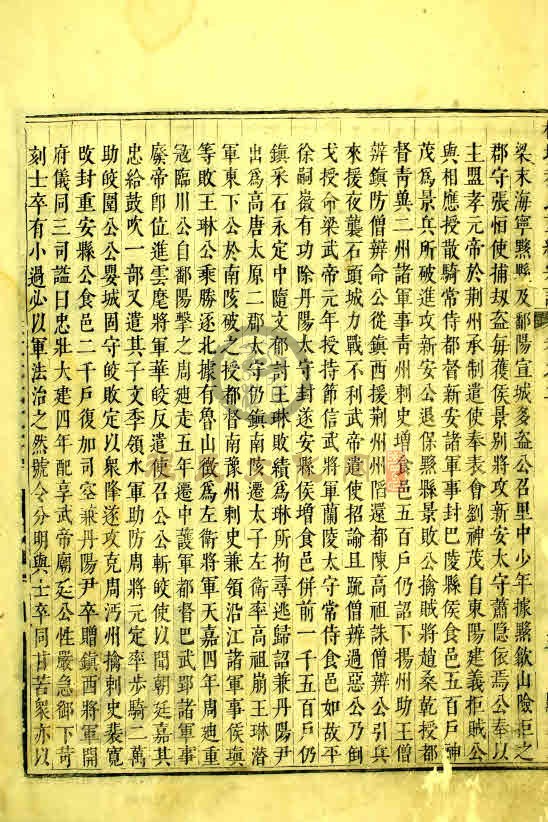 梁末海寧黟縣及鄱陽宣城多盜公召里中少年據黟歙山險拒之
郡守張怕使捕刼盜每獲侯景別將攻新安太守蕭隱依焉公奉以
主盟孝元帝於荆州承制遣使奉表會劉神茂自東陽建義柜賊公
與相應授散騎常侍都督新安諸軍事封巴陵縣侯食邑五百戶神
茂爲景兵所破進攻新安公退保黟縣景敗公擒賊將趙桑乾授都
督靑兾二州諸軍事靑州刺史增食邑五百戶仍詔下揚州助王僧
辨鎮防僧辨命公從鎮西援荆州州䧟還都陳高祖誅僧辨公引兵
來援夜襲石頭城力戰不利武帝遣使招諭且䟽僧辨過惡公乃倒
戈授命梁武帝元年授持節信武將軍蘭陵太守常侍食邑如故平
徐嗣徽有功除丹陽太守封遂安縣侯增食邑併前一千五百戶仍
鎮采石永定中隨文郁討王琳敗績爲琳所拘尋逃歸詔兼丹陽尹
出爲高唐太原二郡太守仍鎮南陵遷太子左衛率高祖崩王琳潛
軍東下公於南陵破之授都督南豫州刺史兼領沿江諸軍事侯瑱
等敗王琳公乘勝逐北據有魯山徴爲左衛將軍天嘉四年周迪重
冦臨川公自鄱陽擊之周迪走五年遷中護軍都督巴武郢諸軍事
廢帝卽位進雲麾將軍華皎反遣使召公公斬皎使以聞朝廷嘉其
忠給鼓吹一部又遣其子文季領水軍助防周將元定率歩騎二萬
助皎圍公公嬰城固守皎敗定以衆降遂攻克周沔州擒刺史裴寬
攺封重安縣公食邑二千戶復加司空兼丹陽尹卒贈鎮西將軍開
府儀同三司謚曰忠壯大建四年配享武帝廟廷公性嚴急御下苛
刻士卒有小過必以軍法治之然號令分明與士卒同甘苦衆亦以